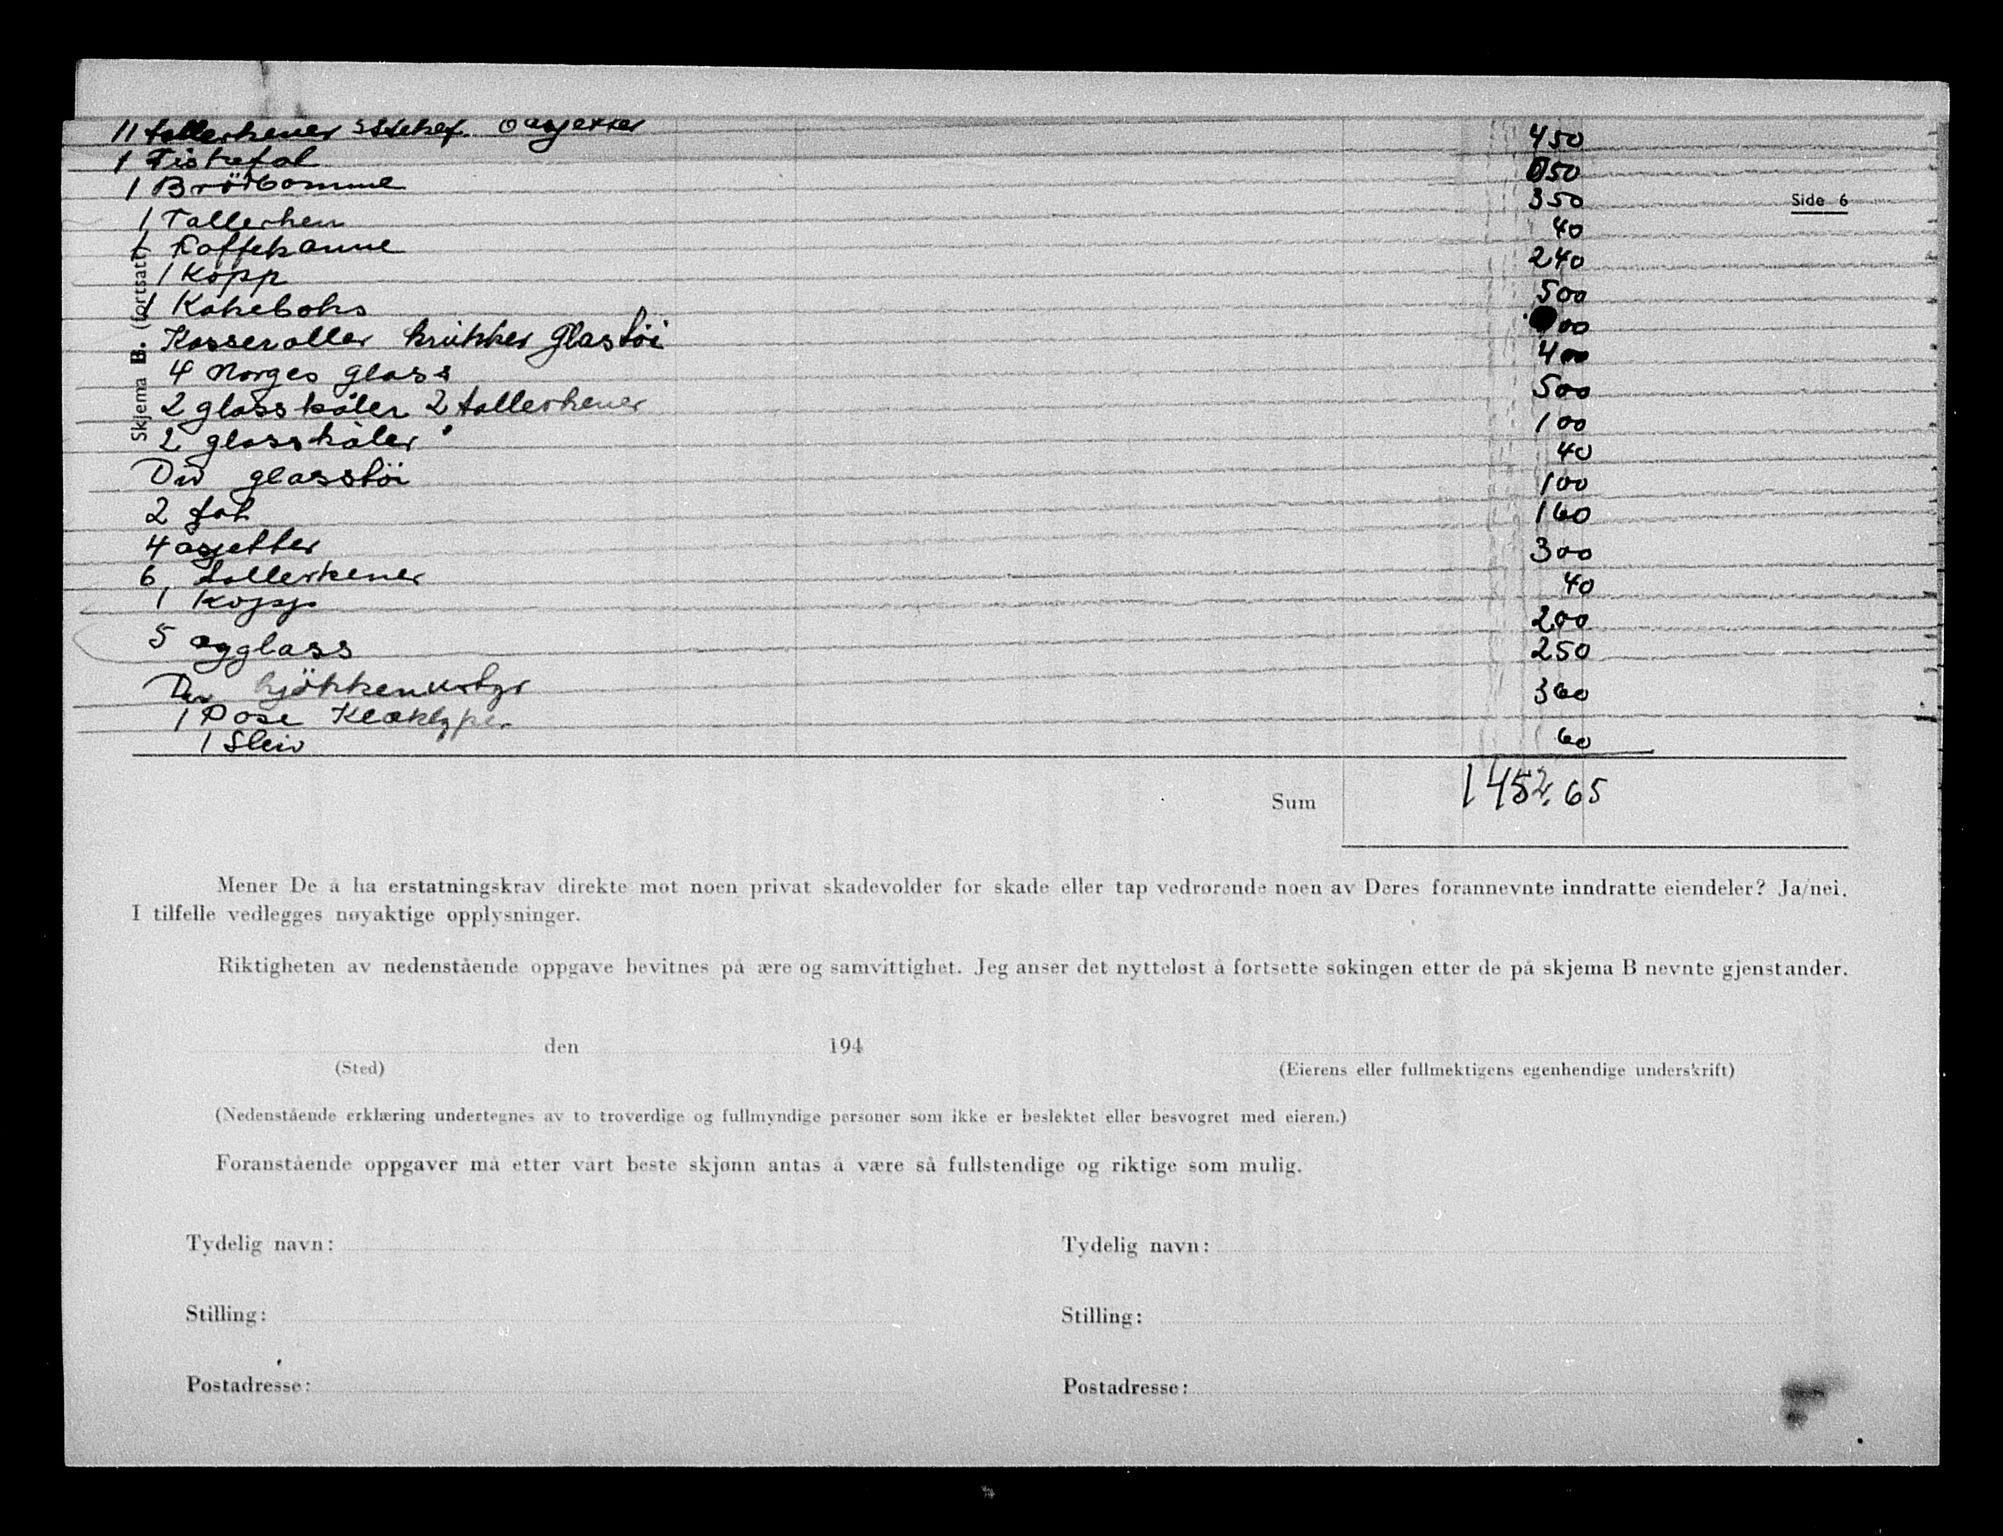 11 tallerkener asjetter 450
1 Fiskefat 50
1 Brödbomme 350
Side 6
1 Tallerken 40
1 Kaffekanne 240
1 Kopp 500
1 Kakeboks 00
Kasseroller krukker glastöi 400
4 Norges glass 500
2 glasskåler 2 tallerkener 100
2 glasskåler 40
Div glasstöi 100
2 fat 160
4 asjetter 300
6 tallerkener 40
1 Kopp 200
5 egglass 250
Div kjökkenutstyr 360
1 Pose Kleklyper
1 Sleiv 60
Skjema B. (fortsatt)
Sum 1452.65
Mener De å ha erstatningskrav direkte mot noen privat skadevolder for skade eller tap vedrørende noen av Deres forannevnte inndratte eiendeler? Ja/nei.
I tilfelle vedlegges nøyaktige opplysninger.
Riktigheten av nedenstående oppgave bevitnes på ære og samvittighet. Jeg anser det nytteløst å fortsette søkingen etter de på skjema B nevnte gjenstander.
den 194
(Sted) (Eierens eller fullmektigens egenhendige underskrift)
(Nedenstående erklæring undertegnes av to troverdige og fullmyndige personer som ikke er beslektet eller besvogret med eieren.)
Foranstående oppgaver må etter vårt beste skjønn antas å være så fullstendige og riktige som mulig.
Tydelig navn: Tydelig navn:
Stilling: Stilling:
Postadresse: Postadresse: